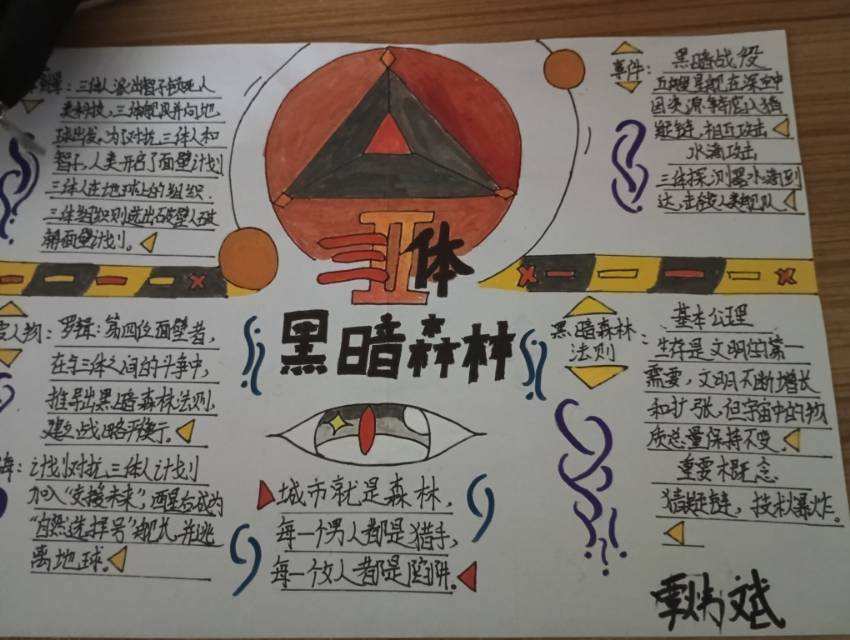 三体人派出智子锁死人
类科技，三体舰队并向地
球出发。为了对抗三体人和
智子，人类开启了面壁计划
三体人在地球上的组织
三体组织则选出破壁人破
解面壁计划。
人物：罗辑：第四位面壁者，
在与三体之间的斗争中，
推导出黑暗森林法则，
建立战略平衡。
计划对抗三体人计划
加入“支援未来”，西星后成为
“自然选择号”舰长，并逃
离地球。
三体
黑暗森林
城市就是森林，
每一个男人都是猎手，
每一个女人都是陷阱。
事件：
黑暗战役
星舰在深空中
因资源 陷入猜
疑链，相互攻击
水滴攻击
三体探测器水滴到
达，击毁人类舰队
黑暗森林
法则：
基本公理
生存是文明的第一
需要，文明不断增长
和扩张，但宇宙中的物
质总量保持不变。
重要概念
猜疑链，技术爆炸。